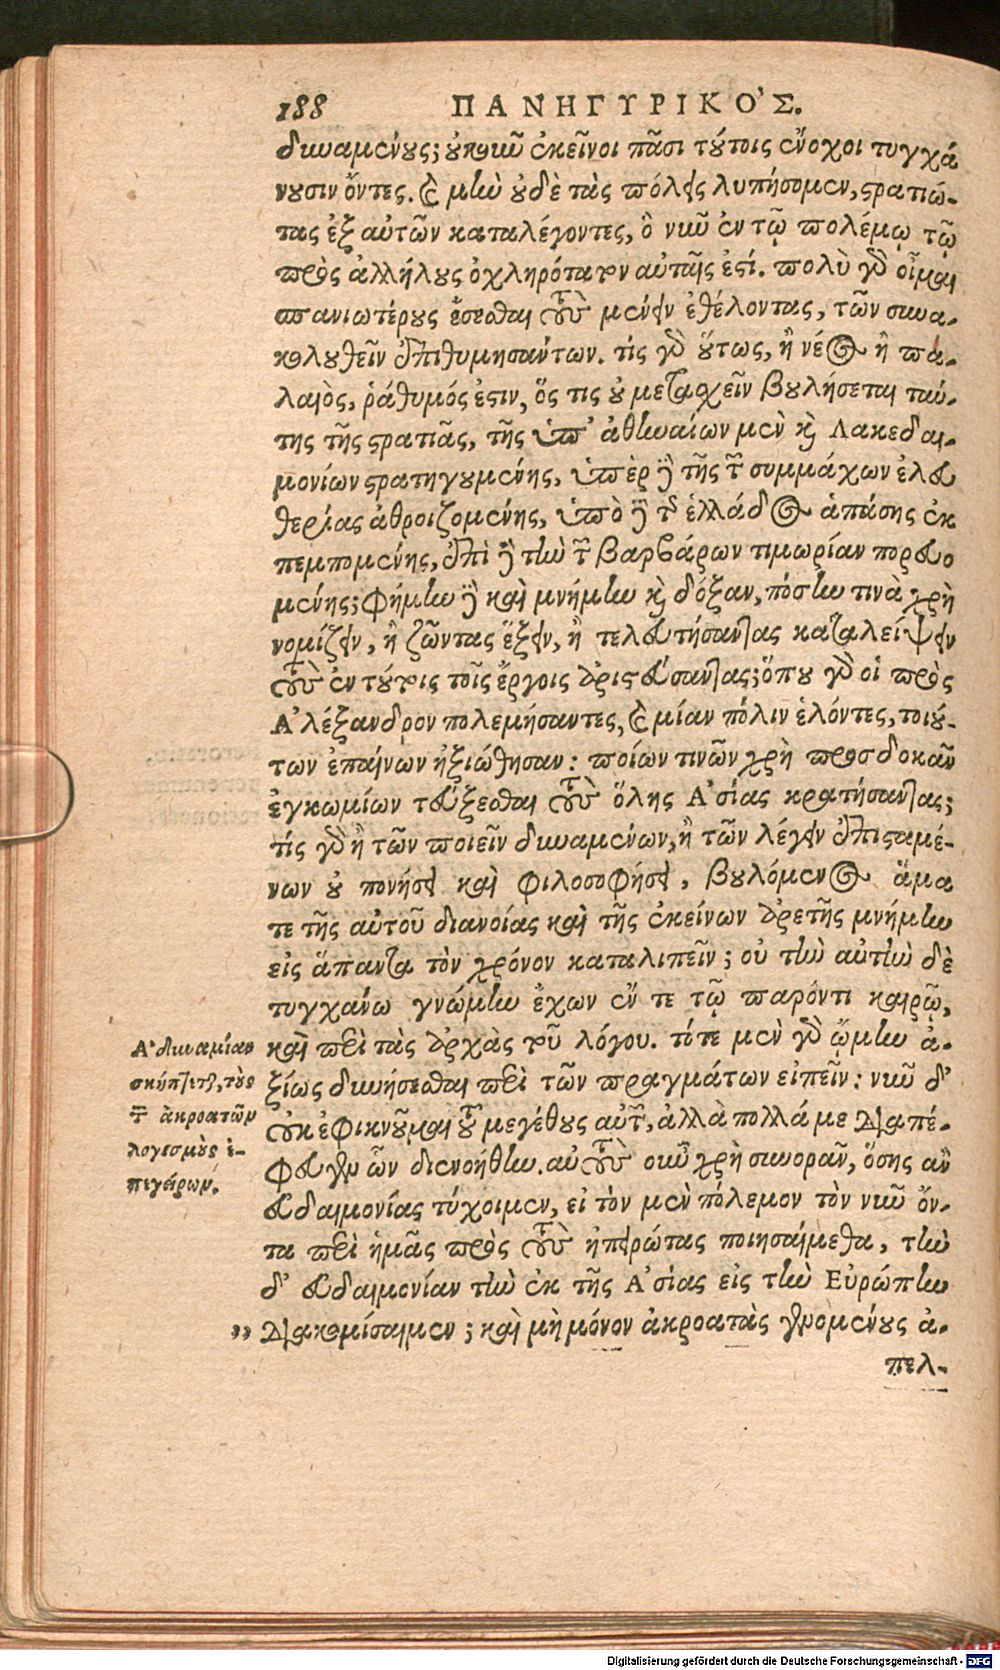 188 ΠΑΝΗΓΥΡΙΚΟ'Σ.
δυναμένους; οὐκοῦν ἐκεῖνοι πᾶσι τούτοις ἔνοχοι τυγχά
νουσιν ὄντες. καὶ μὴν οὐδὲ τὰς πόλεις λυπήσομεν, στρατιώ-
τας ἐξ αὐτῶν καταλέγοντες, ὃ νῦν ἐν τῷ πολέμῳ τῷ
πρὸς ἀλλήλους ὀχληρότατον αὐταῖς ἐστί. πολὺ γὰρ οἶμαι
σπανιωτέρους ἔσεσθαι τοὺς μένειν ἐθέλοντας, τῶν συνα-
κολουθεῖν ἐπιθυμησάντων. τίς γὰρ οὕτως, ἢ νέος ἢ πα-
λαιὸς, ῥάθυμός ἐστιν, ὅς τις οὐ μετασχεῖν βουλήσεται ταύ-
της τῆς στρατιᾶς, τῆς ὑπ' ἀθηναίων μὲν καὶ Λακεδαι-
μονίων στρατηγουμένης, ὑπὲρ δὲ τῆς τῶν συμμάχων ἐλευ
θερίας ἀθροιζομένης, ὑπὸ δὲ τῆς ἑλλάδος ἁπάσης ἐκ
πεμπομένης, ἐπὶ δὲ τὴν τῶν βαρβάρων τιμωρίαν πορευο
μένης; φήμην δὲ καὶ μνήμην καὶ δόξαν, πόσην τινὰ χρὴ
νομίζειν, ἢ ζῶντας ἕξειν, ἢ τελευτήσαντας καταλείψειν
τοὺς ἐν τούτοις τοῖς ἔργοις ἀριστεύσαντας; ὅπου γὰρ οἱ πρὸς
Ἀλέξανδρον πολεμήσαντες, καὶ μίαν πόλιν ἑλόντες, τοιού-
των ἐπαίνων ἠξιώθησαν: ποίων τινῶν χρὴ προσδοκᾶν
ἐγκωμίων τεύξεσθαι τοὺς ὅλης Ἀσίας κρατήσαντας;
τίς γὰρ ἢ τῶν ποιεῖν δυναμένων, ἢ τῶν λέγειν ἐπισταμέ-
νων οὐ πονήσει καὶ φιλοσοφήσει, βουλόμενος ἅμα
τε τῆς αὑτοῦ διανοίας καὶ τῆς ἐκείνων ἀρετῆς μνήμην
εἰς ἅπαντα τὸν χρόνον καταλιπεῖν; οὐ τὴν αὐτὴν δὲ
τυγχάνω γνώμην ἔχων ἔν τε τῷ παρόντι καιρῷ,
καὶ περὶ τὰς ἀρχὰς τοῦ λόγου. τότε μὲν γὰρ ᾤμην ἀ-
ξίως δυνήσεσθαι περὶ τῶν πραγμάτων εἰπεῖν: νῦν δ'
οὐκ ἐφικνοῦμαι τοῦ μεγέθους αὐτῶν, ἀλλὰ πολλά με διαπέ-
φευγεν ὧν διενοήθην. αὐτοὺς οὖν χρὴ συνορᾶν, ὅσης ἂν
εὐδαιμονίας τύχοιμεν, εἰ τὸν μὲν πόλεμον τὸν νῦν ὄν-
τα περὶ ἡμᾶς πρὸς τοὺς ἠπειρώτας ποιησαίμεθα, τὴν
δ' εὐδαιμονίαν τὴν ἐκ τῆς Ἀσίας εἰς τὴν Εὐρώπην
" διακομίσαιμεν; καὶ μὴ μόνον ἀκροατὰς γενομένους ἀ-
πελ-
Ἀδυναμίαν
σκήπτεται, τοὺς
τῶν ἀκροατῶν
λογισμοὺς ἐ-
πεγείρων.
Digitalisierung gefördert durch die Deutsche Forschungsgemeinschaft - DFG